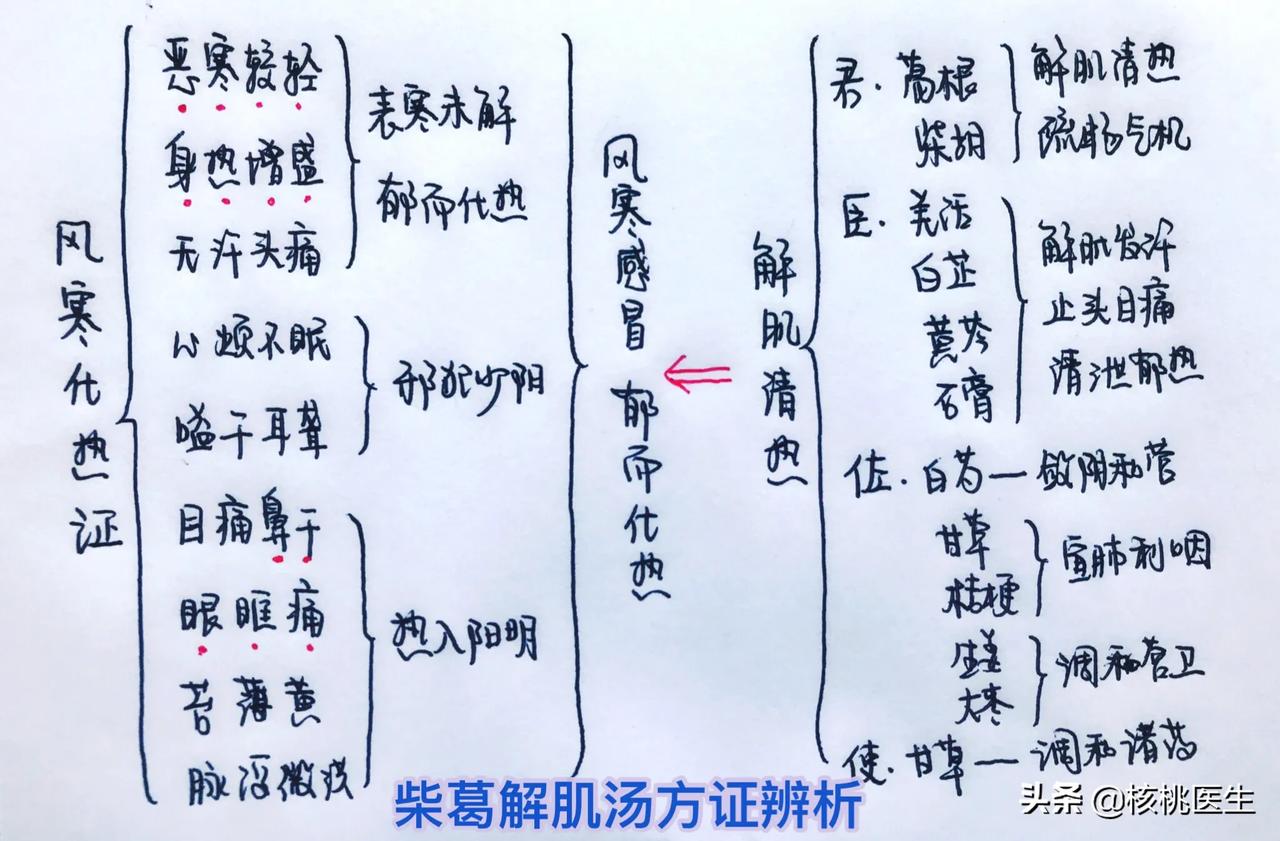 风寒化热证
恶寒较轻
身热增盛
无汗头痛
表寒未解
郁而化热
心烦不眠
嗌干耳聋
邪犯少阳
目痛鼻干
眼眶痛
苔薄黄
脉浮微洪
热入阳明
风寒感冒 郁而化热
解肌清热
君·葛根
柴胡
解肌清热
疏畅气机
臣·羌活
白芷
黄芩
石膏
解肌发汗
止头目痛
清泄郁热
佐·白芍—敛阴和营
甘草
桔梗
宣肺利咽
生姜
大枣
调和营卫
使·甘草—调和诸药
柴葛解肌汤方证辨析
头条 @核桃医生